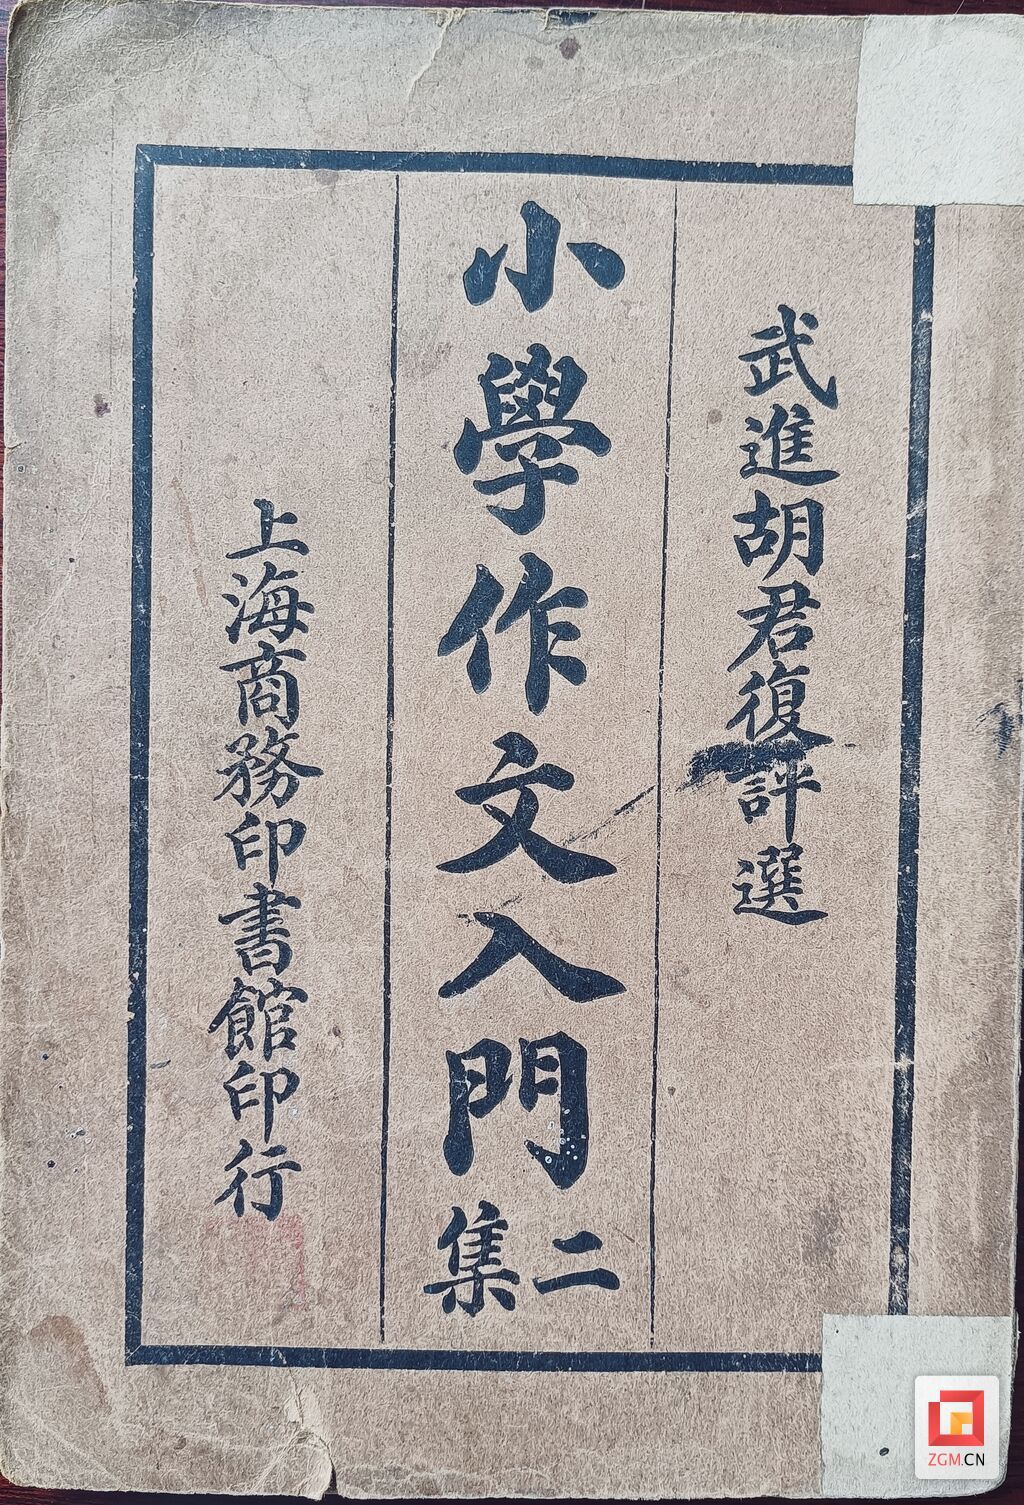 武進胡君復評選
小學作文入門二集
上海商務印書館印行
ZGM.CN